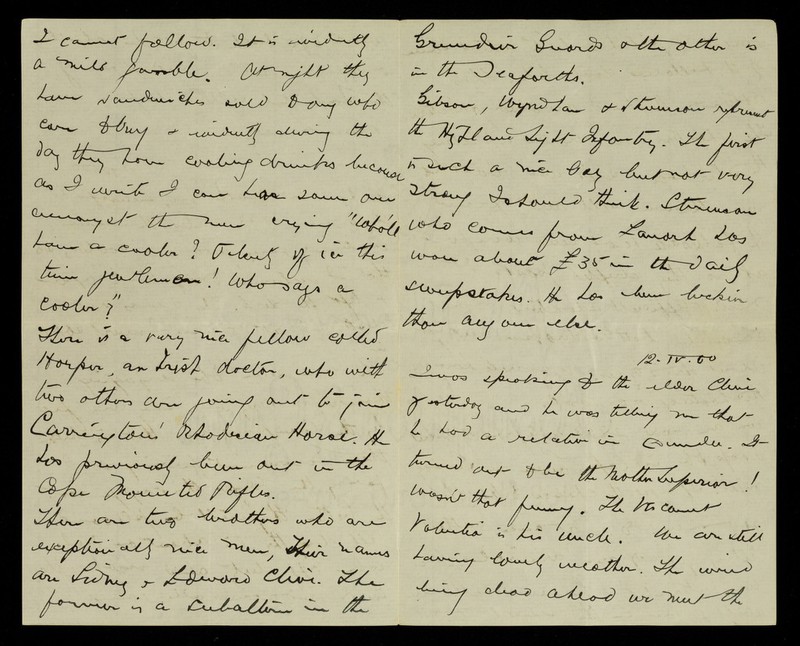 I cannot follow. It is evidently
a mild gamble. At night they
have sandwiches sold to any who
care to buy & evidently during the
day they have cooling drinks because
as I write I can hear some one
amongst the men crying "Who'll
have a cooler? Plenty of ice this
time gentlemen! Who says a
cooler?"
There is a very nice fellow called
Harper, an Irish doctor, who with
two others are going out to join
Carrington's Rhodesian Horse. He
has previously been out in the
Cape Mounted Rifles.
There are two brothers who are
exceptionally nice men, their names
are Sidney & Edward Clive. The
former is a subaltern in the
Grenadier Guards & the other is
in the Seaforths.
Gibson, Wyndham & Stevenson represent
the Highland Light Infantry. The first
is such a nice boy but not very
strong I should think. Stevenson
who comes from Lanark has
won about £35 in the daily
sweepstakes. He has been luckier
than any one else.
12.IV.00
I was speaking to the elder Clive
yesterday and he was telling me that
he had a relation in Dundee. It
turned out to be the Mother Superior!
wasn't that funny. The Viscount
Valentia is his uncle. We are still
having lovely weather. The wind
being dead ahead we meet the